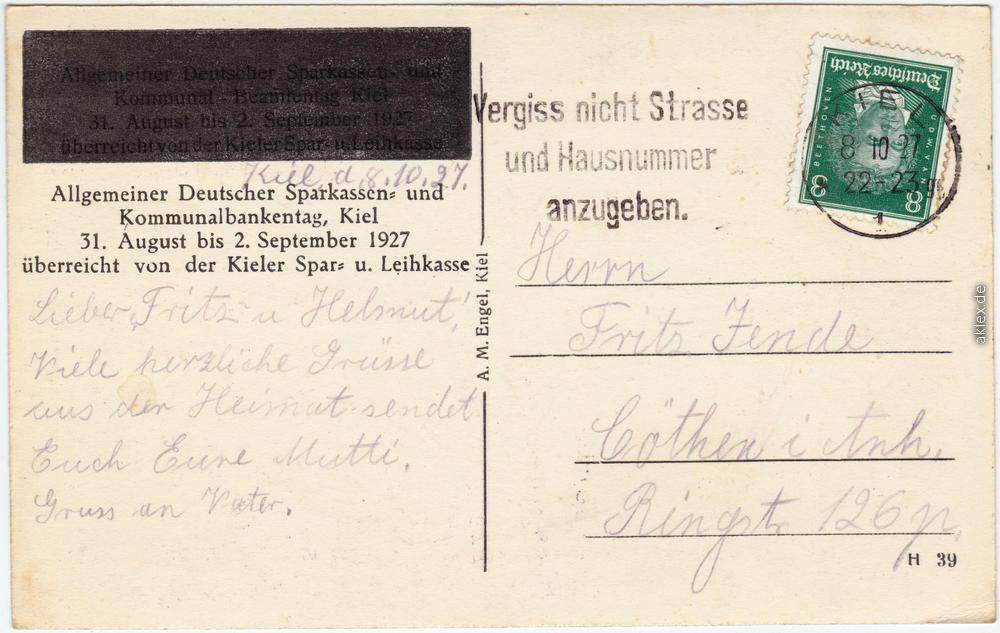 Allgemeiner Deutscher Sparkassen- und
Kommunal-Beamtentag Kiel
31. August bis 2. September 1927
überreicht von der Kieler Spar- u. Leihkasse
Kiel, d. 8.10.27.
Allgemeiner Deutscher Sparkassen- und
Kommunalbankentag, Kiel
31. August bis 2. September 1927
überreicht von der Kieler Spar- u. Leihkasse
Lieber Fritz u Helmut!
Viele herzliche Grüsse
aus der Heimat sendet
Euch Eure Mutti.
Gruss an Vater.
A. M. Engel, Kiel
Vergiss nicht Strasse
und Hausnummer
anzugeben.
Deutsches Reich
BEETHOVEN
8 8
KIEL
8 10 27
22-23
1
Herrn
Fritz Jende
Cöthen i Anh.
Ringstr. 126 p.
H 39
aklex.de